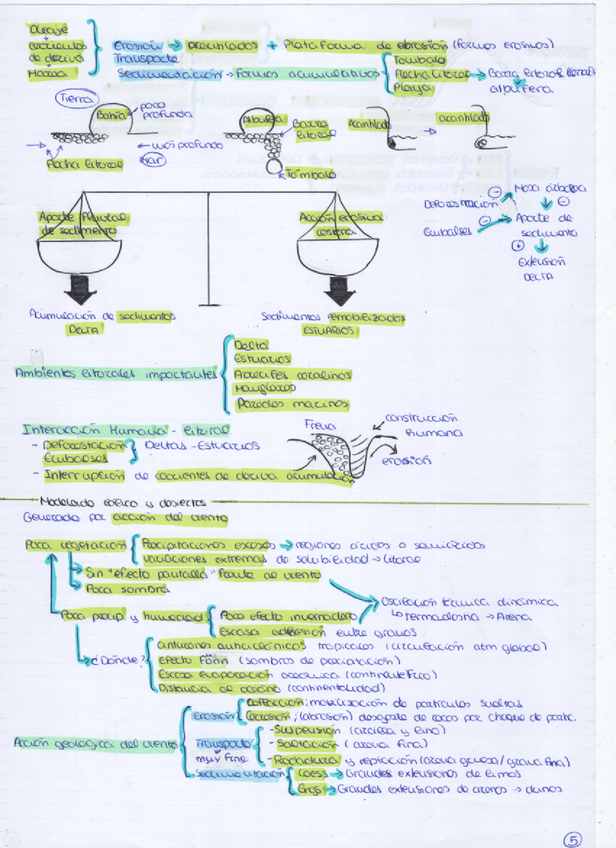 Oleaje
+
corrientes de deriva
Mareas
Erosión → Acantilados + Plataforma de abrasión (formas erosivas)
Transporte
Sedimentación → Formas acumulativas
Tómbolo
Flecha litoral → Barra litoral
Playa
albufera
Tierra
Bahía
poco profunda
Flecha litoral
más profundo
Mar
Albufera
Barra litoral
Tómbolo
Acantilado → acantilado
Aporte fluvial de sedimento
Acción erosiva costera
Deforestación
Masa arbórea
Embalses
Aporte de sedimento
Extensión DELTA
Acumulación de sedimentos
DELTA
Sedimentos removilizados
ESTUARIOS
Ambientes litorales importantes
Delta
Estuarios
Arrecifes coralinos
Manglares
Praderas marinas
Interacción Humana - litoral
- Deforestación
Embalses
Deltas - Estuarios
- Interrupción de corrientes de deriva acumulación
Frena
construcción humana
erosión
Modelado eólico y desiertos
Generado por acción del viento
Poca vegetación
Precipitaciones escasas → regiones áridas o semiáridas
variaciones extremas de salubilidad → Litoral
Sin "efecto pantalla" frente al viento
Poca sombra
Poca precip y humedad
Poco efecto invernadero
Escasa adhesión entre granos
Oscilación térmica dinámica
↳ termoclastia → Arena
¿Dónde?
cinturones anticiclónicos tropicales (circulación atm global)
efecto Föhn (sombras de precipitación)
Escasa evaporación oceánica
Distancia al océano (continentalidad)
Acción geológica del viento
Erosión
Deflacción; movilización de partículas sueltas
Corrosión; (abrasión) desgaste de rocas por choque de partic.
Transporte
muy fina
- Suspensión (arcilla y limo)
- Saltación (arena fina)
- Rodadura y reptación (arena gruesa/grava fina)
sedimentación
Loess → Grandes extensiones de limos
Ergs → Grandes extensiones de arenas → dunas
5